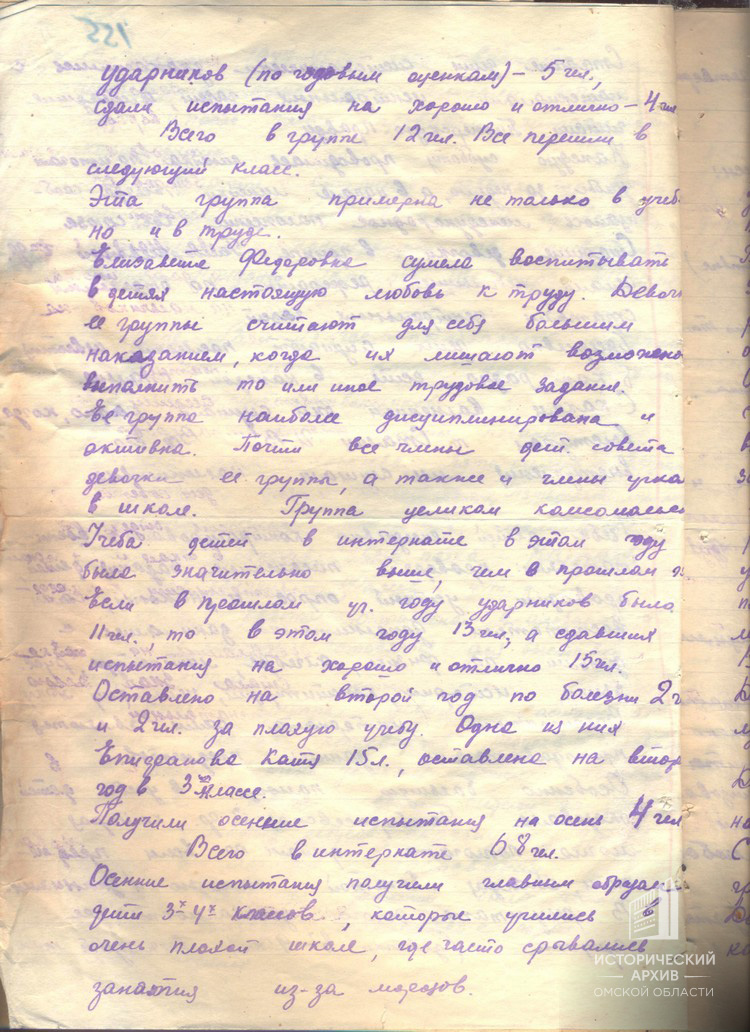 221
ударников (по годовым оценкам) – 5 чел.,
сдали испытания на хорошо и отлично – 4 чел
Всего в группе 12 чел. Все перешли в
следующий класс.
Эта группа примерна не только в учеб-
но и в труде.
Елизавета Федоровна сумела воспитывать
в детях настоящую любовь к труду. Девоч
ее группы считают для себя большим
наказанием, когда их лишают возможно
выполнить то или иное трудовое задание.
Ее группа наиболее дисциплинирована и
активна. Почти все члены дет. совета
девочки ее группы, а также и члены учко
в школе. Группа целиком комсомольс
Учеба детей в интернате в этом году
была значительно выше, чем в прошлом г.
Если в прошлом уч. году ударников было
11 чел. то в этом году 13 чел., а сдавших
испытания на хорошо и отлично 15 чел.
Оставлено на второй год по болезни 2 ч
и 2 чел. за плохую учебу. Одна из них
Катя 15 л., оставлена на втор
год в 3м классе.
Получили осенние испытания на осень 4 чел
Всего в интернате 68 чел.
Осенние испытания получили главным образом
дети 3х–4х классов, которые учились
очень плохой школе, где часто срывались
занятия из-за морозов.
ИСТОРИЧЕСКИЙ
АРХИВ
ОМСКОЙ ОБЛАСТИ